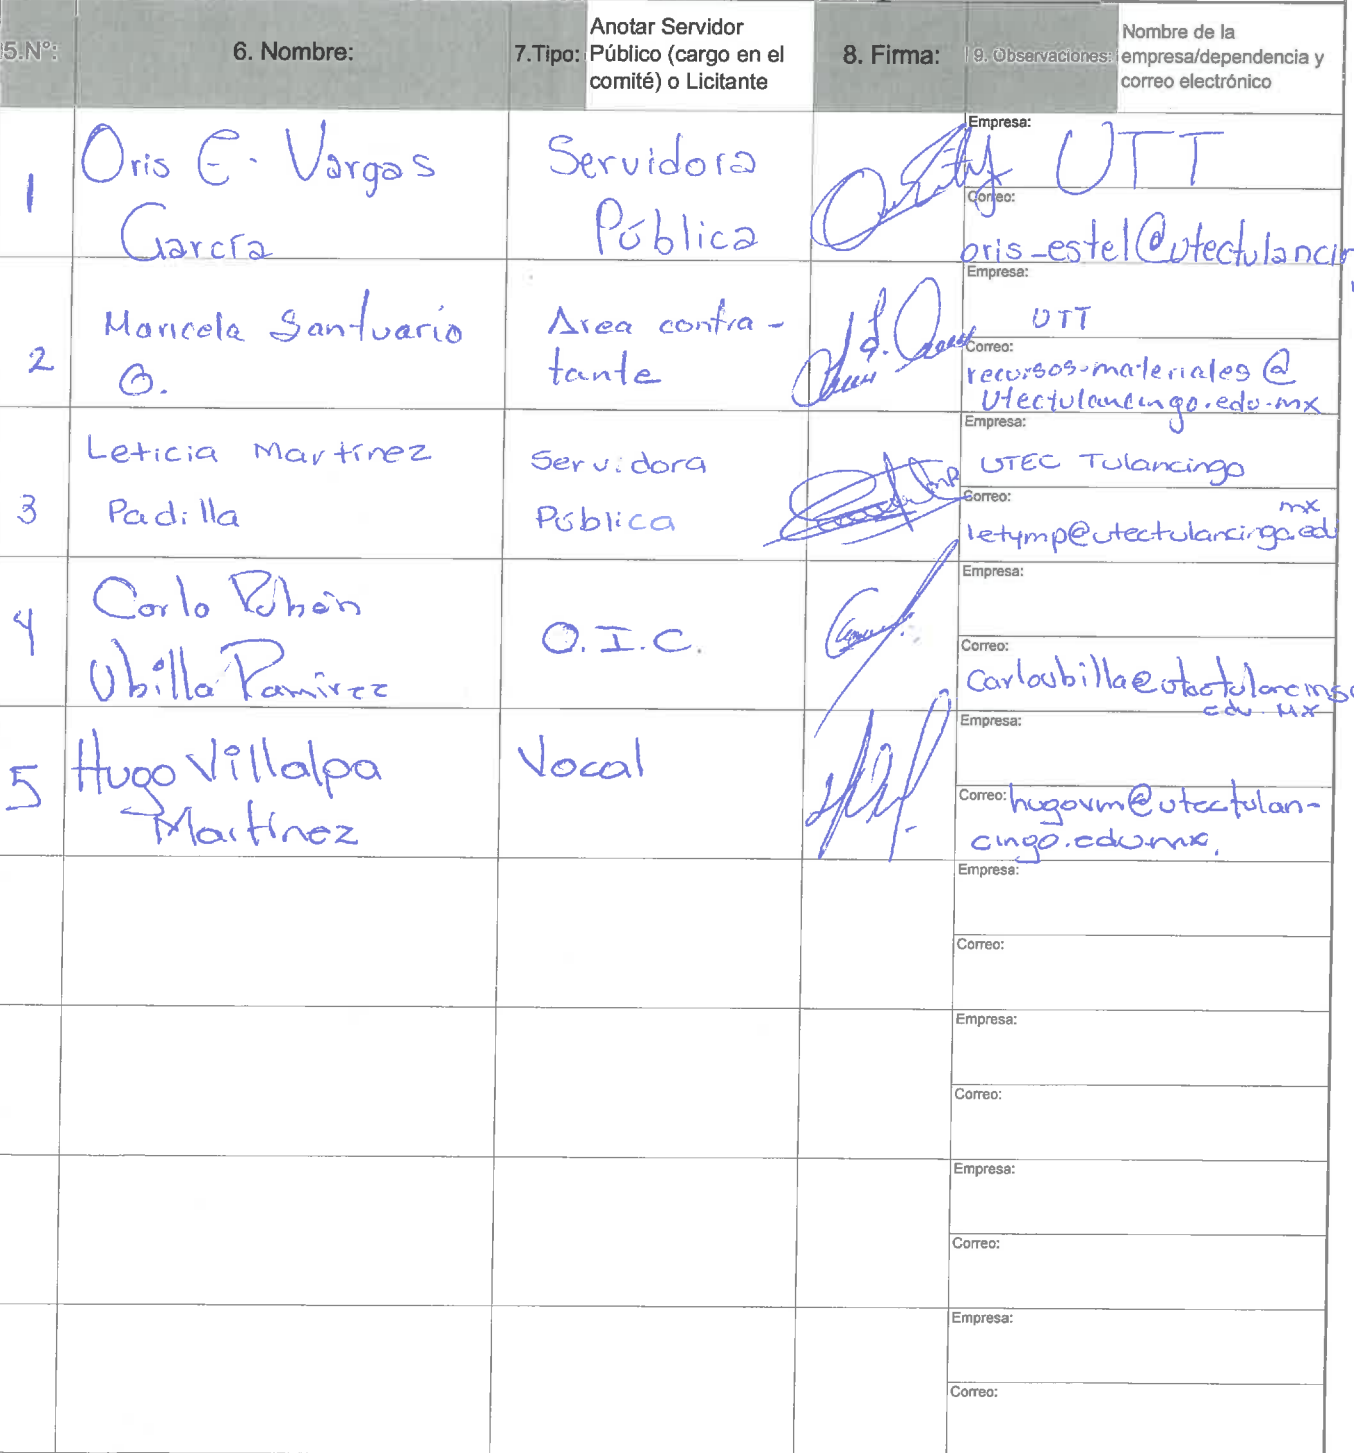 5.N°:
6. Nombre:
7.Tipo:
Anotar Servidor
Público (cargo en el
comité) o Licitante
8. Firma:
9. Observaciones:
Nombre de la
empresa/dependencia y
correo electrónico
1
Oris E. Vargas
García
Servidora
Pública
Empresa:
UTT
Correo:
oris_estel@utectulancin
2
Maricela Santuario
O.
Area contra-
tante
Empresa:
UTT
Correo:
recursos-materiales@
utectulancingo.edu.mx
3
Leticia Martínez
Padilla
Servidora
Pública
Empresa:
UTEC Tulancingo
Correo:
mx
letymp@utectulancingo.edu
4
Carlo Rubén
Ubilla Ramírez
O.I.C.
Empresa:
Correo:
carloubilla@utectulancingo
edu.mx
5
Hugo Villalpa
Martínez
Vocal
Empresa:
Correo:
hugovm@utectulan-
cingo.edu.mx.
Empresa:
Correo:
Empresa:
Correo:
Empresa:
Correo:
Empresa:
Correo: